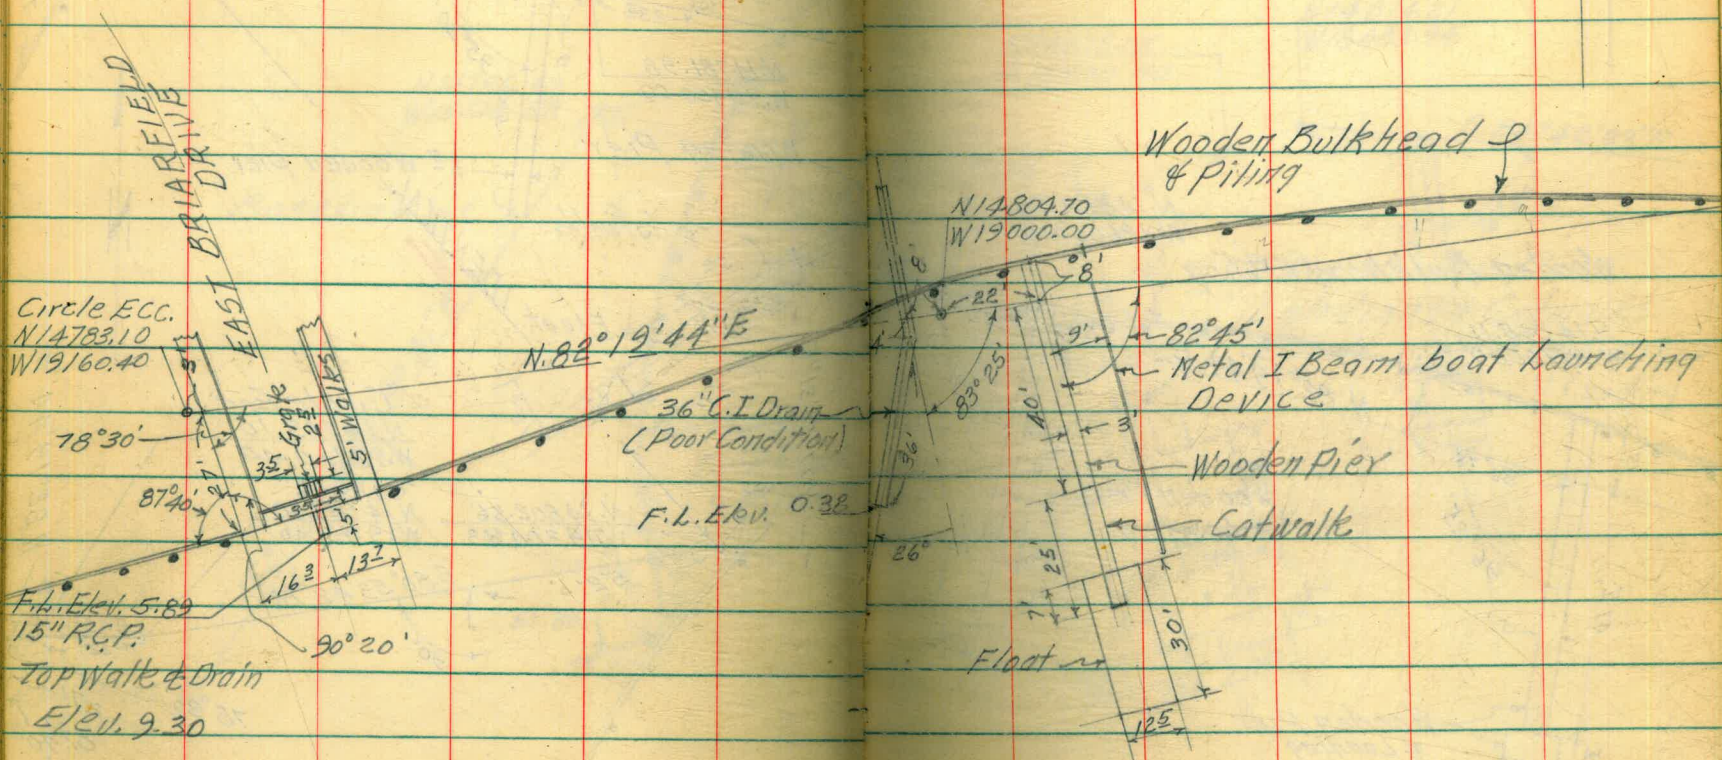 EAST BRIARFIELD
DRIVE
Circle ECC.
N14783.10
W19160.40
3'
78°30'
27'
87°40'
3⁵
Grate
2⁵
5' Walks
5'
16³
13⁷
F.L. Elev. 5.89
15" R.C.P.
90°20'
Top Walk & Drain
Elev. 9.30
N.82°19'44"E
36" C.I Drain
(Poor Condition)
F.L. Elev. 0.38
36'
26°
8'
4'
N14804.70
W19000.00
22
83°25'
8'
Wooden Bulkhead
& Piling
9'
82°45'
Metal I Beam boat Launching
Device
40'
3'
Wooden Pier
Catwalk
25'
7'
Float
30'
12⁵